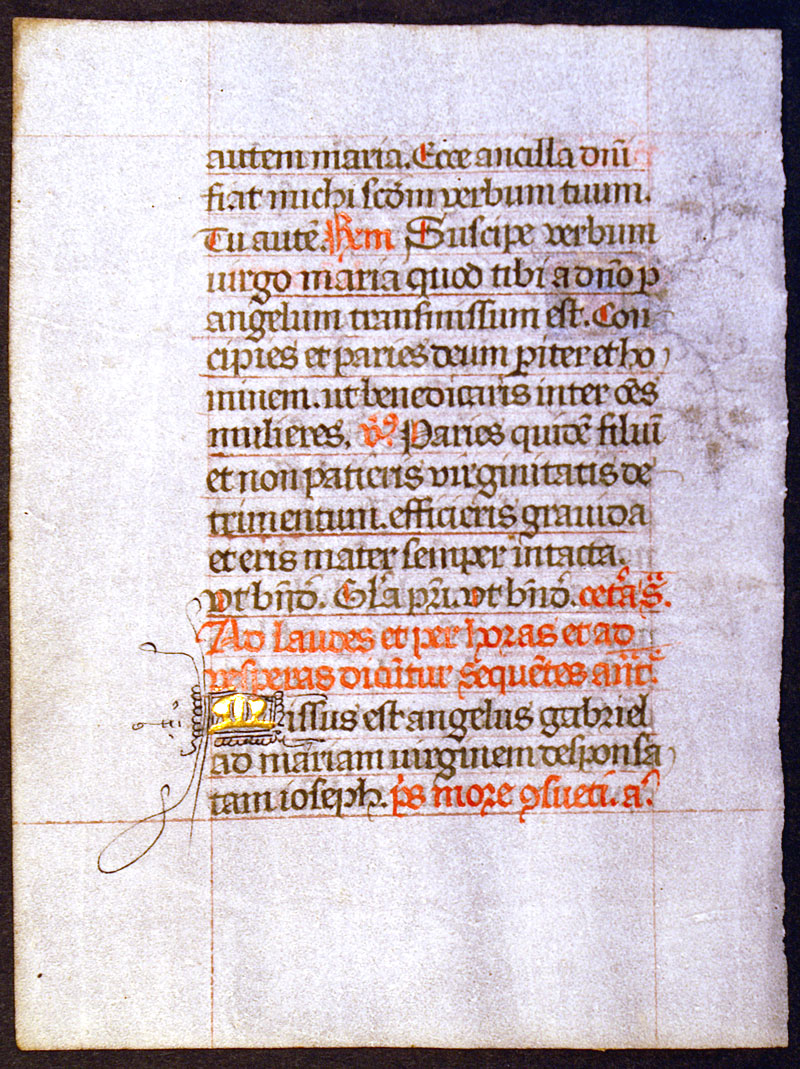 autem maria. Ecce ancilla dñi
fiat michi scđm verbum tuum.
Tu autē. Suscipe verbum
uirgo maria quod tibi a dño p
angelum transmissum est. Con
cipies et paries deum piter et ho
minem. ut benedicaris inter oēs
mulieres. Paries quidē filiuȝ
et non patieris virginitatis de
trimentum. efficieris grauida
et eris mater semper intacta.
Vt bñd. Gła pri. vt bñd. cetã
Ad laudes et per horas et ad
vesperas dicūtur sequētes añe.
Missus est angelus gabriel
ad mariam uirginem desponsa
tam ioseph. ps more ꝯsueti. a.